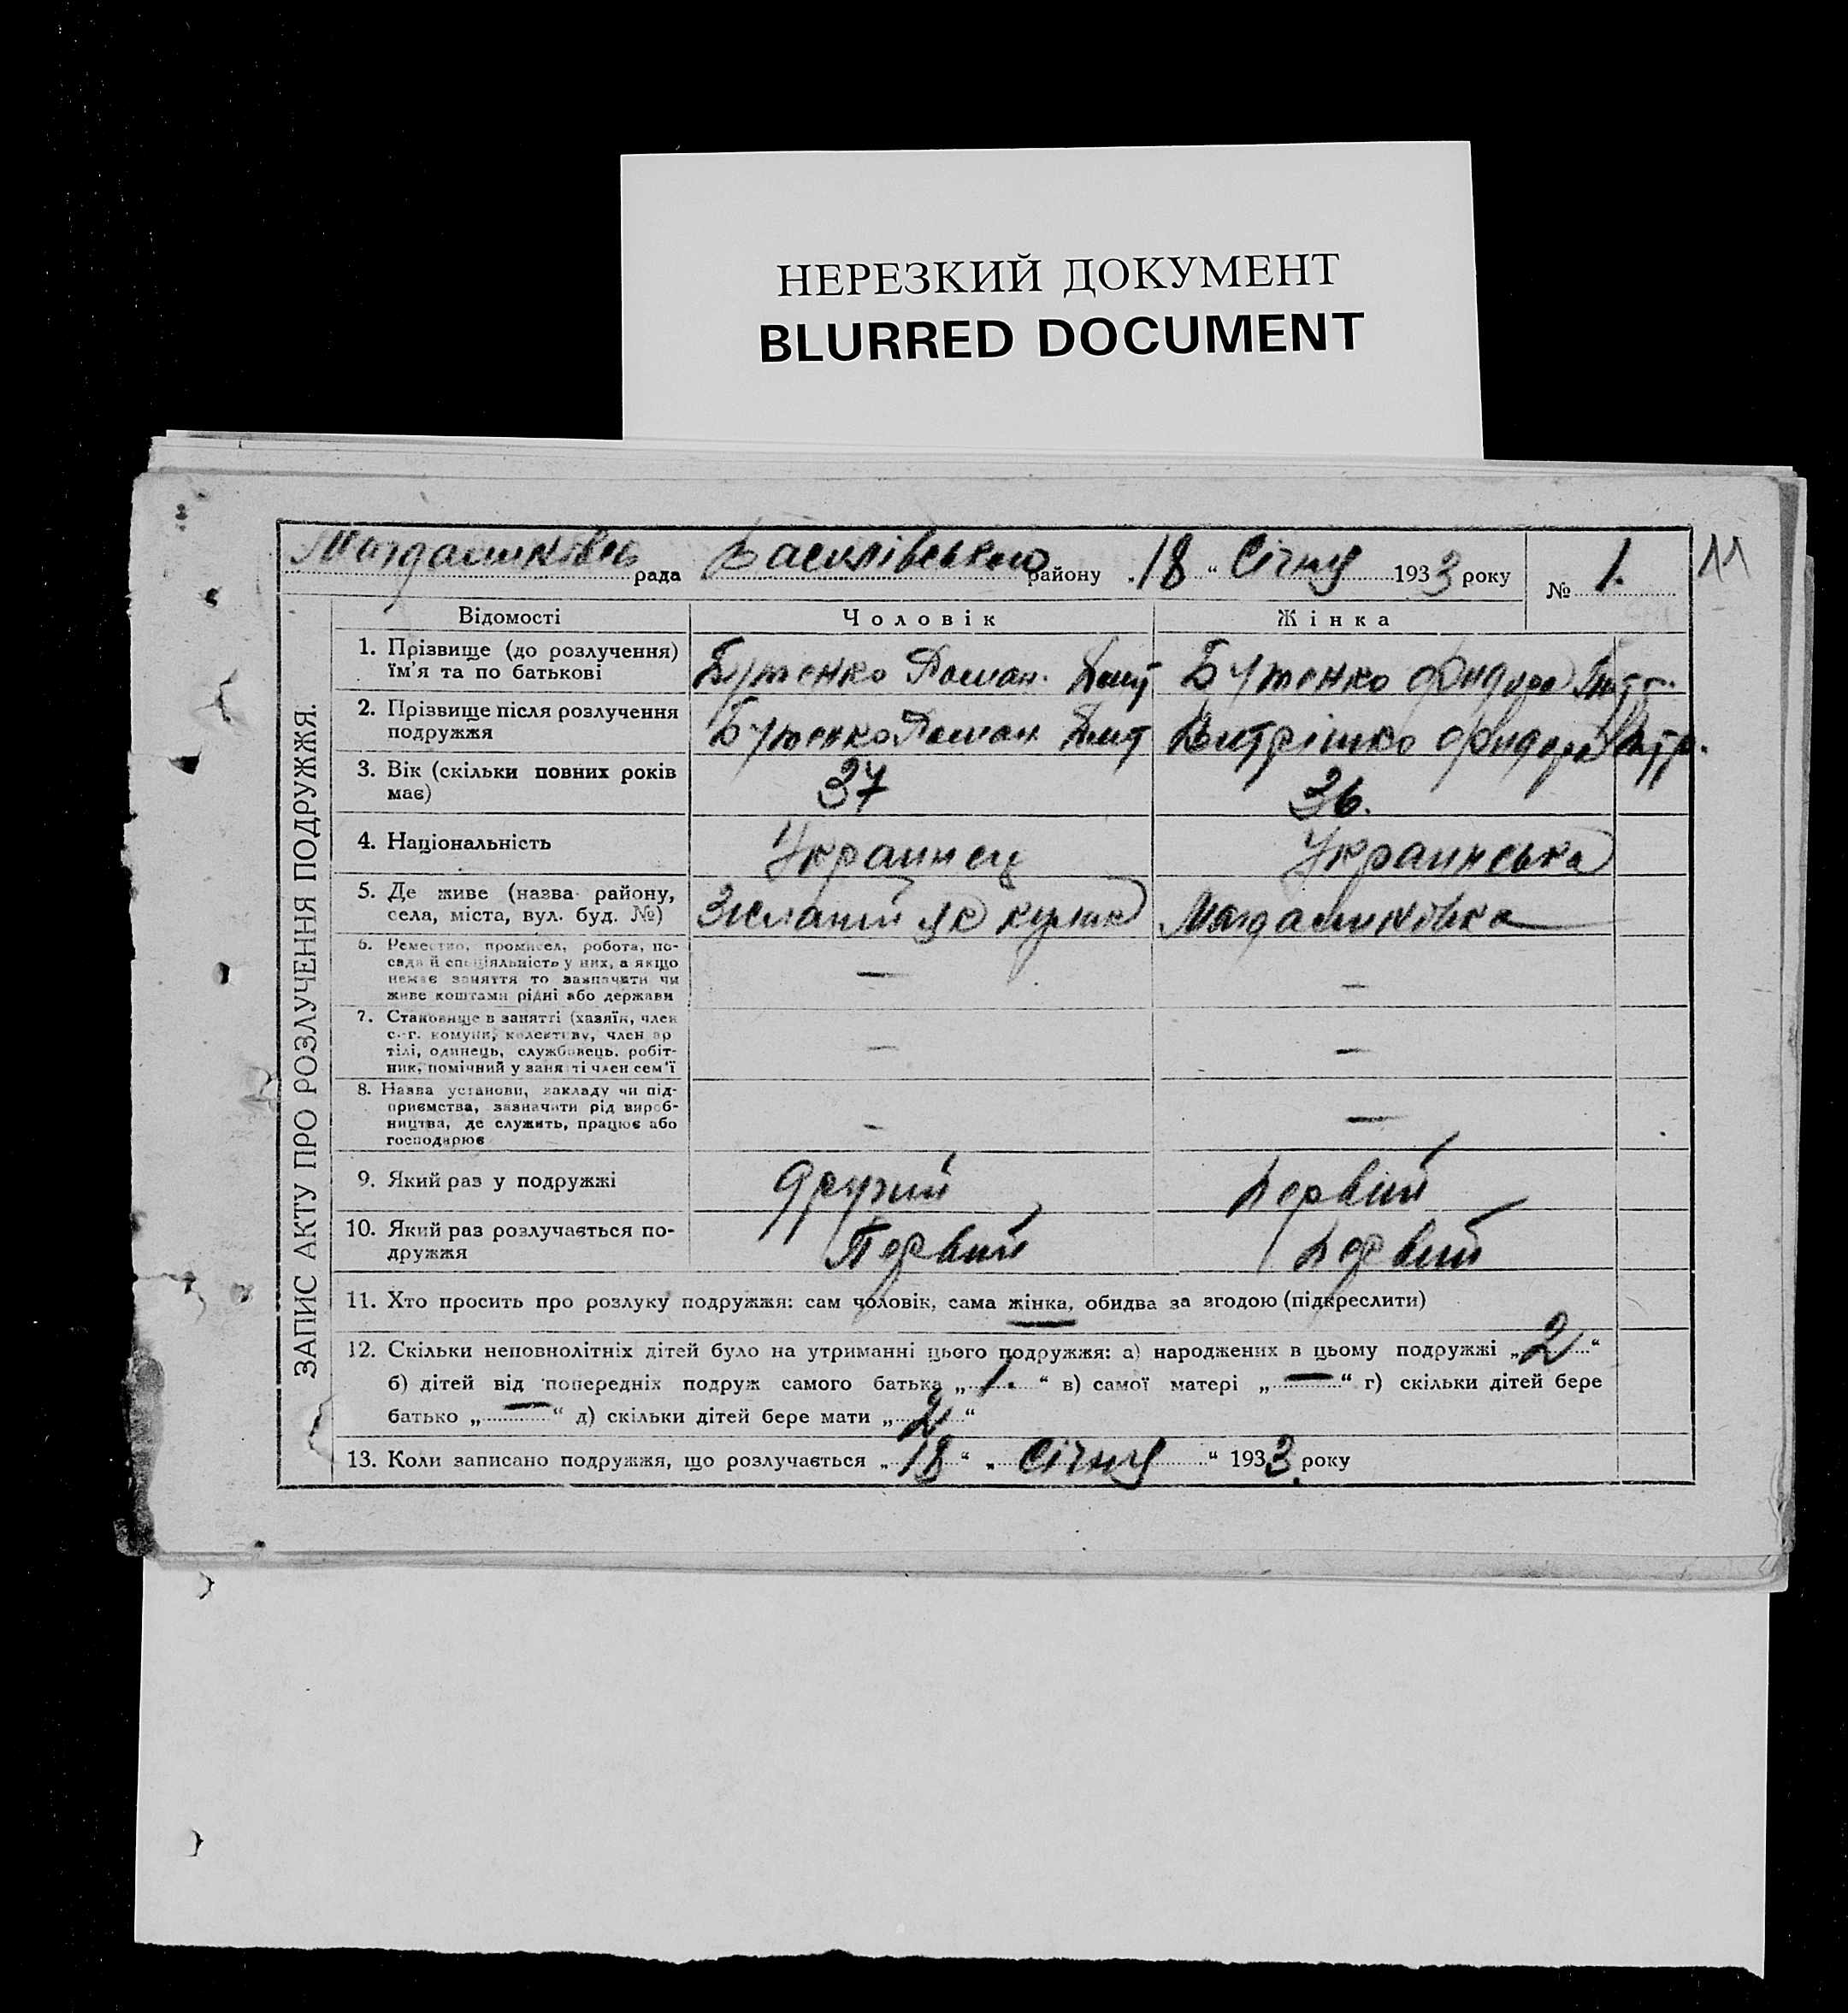 НЕРЕЗКИЙ ДОКУМЕНТ
BLURRED DOCUMENT
рада Василівського району „18“ Січня 1933 року № 1. 11
ЗАПИС АКТУ ПРО РОЗЛУЧЕННЯ ПОДРУЖЖЯ.
Відомості Чоловік Жінка
1. Прізвище (до розлучення) Бутенко Роман. Дмит Бутенко
їм'я та по батькові
2. Прізвище після розлучення Бутенко Роман Дмит
подружжя
3. Вік (скільки повних років 37 36.
має)
4. Національність Украинец Украинська
5. Де живе (назва району, як
села, міста, вул. буд. №)
6. Ремество, промисел, робота, по-
сада й спеціяльність у них, а якщо
немає заняття то зазначити чи —
живе коштами рідні або держави —
7. Становище в занятті (хазяїн, член
с.-г. комуни, колективу, член ар
тілі, одинець, службовець, робіт- — —
ник, помічний у занятті член сем'ї
8. Назва установи, закладу чи під-
приємства, зазначити рід вироб-
ництва, де служить, працює або — —
господарює
9. Який раз у подружжі другий первий
10. Який раз розлучається по- Первий первий
дружжя
11. Хто просить про розлуку подружжя: сам чоловік, сама жінка, обидва за згодою (підкреслити)
12. Скільки неповнолітніх дітей було на утриманні цього подружжя: а) народжених в цьому подружжі „2“
б) дітей від попередніх подруж самого батька „1.“ в) самої матері „—“ г) скільки дітей бере
батько „—“ д) скільки дітей бере мати „2“
13. Коли записано подружжя, що розлучається „18“ „Січня“ 1933 року